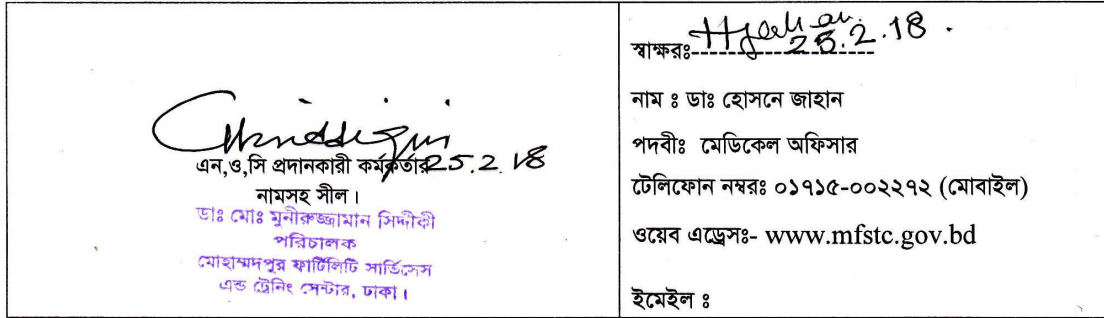 25.2.18
এন,ও,সি প্রদানকারী কর্মকর্তার
নামসহ সীল।
ডাঃ মোঃ মুনীরুজ্জামান সিদ্দীকী
পরিচালক
মোহাম্মদপুর ফার্টিলিটি সার্ভিসেস
এন্ড ট্রেনিং সেন্টার, ঢাকা।
স্বাক্ষরঃ HJahan 25.2.18.
নাম ঃ ডাঃ হোসনে জাহান
পদবীঃ মেডিকেল অফিসার
টেলিফোন নম্বরঃ ০১৭১৫-০০২২৭২ (মোবাইল)
ওয়েব এড্রেসঃ- www.mfstc.gov.bd
ইমেইল ঃ